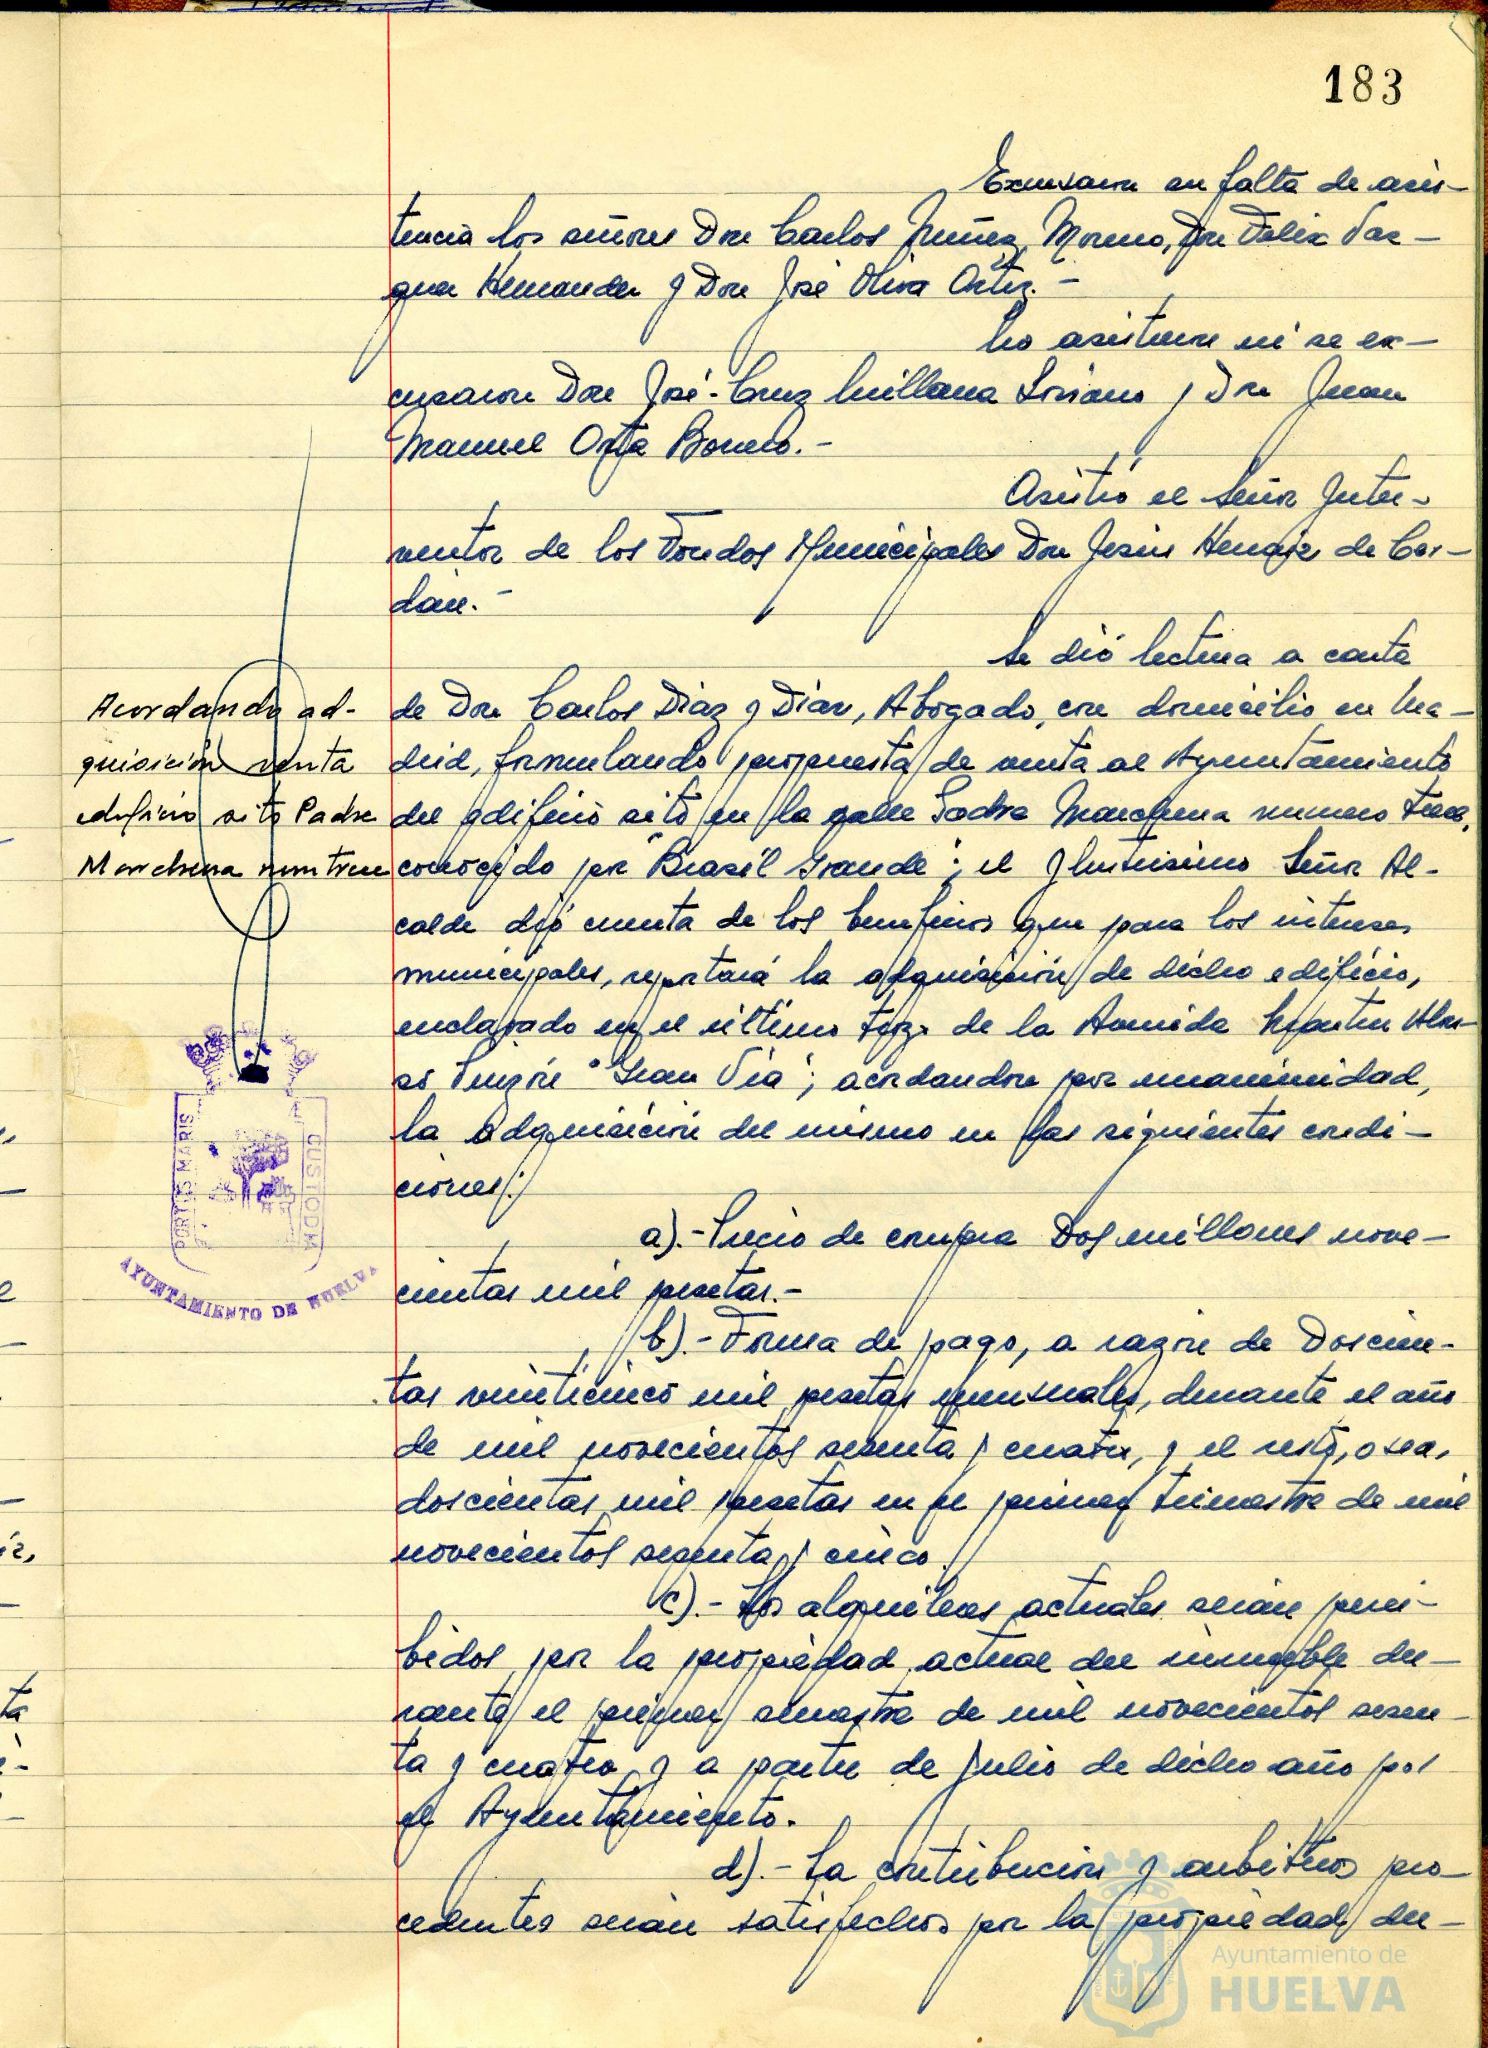 183
Excusaron su falta de asis-
tencia los señores Don Carlos Núñez Moreno, Don Felix Vaz-
quez Hernandez y Don José Oliva Ortiz.-
No asistieron ni se ex-
cusaron Don José-Cruz Millana Soriano y Don Juan
Manuel Orta Borrero.-
Asistió el Señor Inter-
ventor de los Fondos Municipales Don Jesús Henajz de Cor-
dan.-
Se dió lectura a carta
Acordando ad-
quisición venta
edificio sito Padre
Marchena num trece
de Don Carlos Diaz y Diaz, Abogado, con domicilio en Ma-
drid, formulando propuesta de venta al Ayuntamiento
del edificio sito en la calle Padre Marchena numero trece,
conocido por "Brasil Grande"; el Ilustrisimo Señor Al-
calde dió cuenta de los beneficios que para los intereses
municipales, reportará la adquisición de dicho edificio,
enclavado en el último trozo de la Avenida Martin Alon-
so Pinzón "Gran Via"; acordandose por unanimidad,
la adquisición del mismo en las siguientes condi-
ciones:
a).- Precio de compra Dos millones nove-
cientas mil pesetas.-
b).- Forma de pago, a razón de Doscien-
tas veinticinco mil pesetas mensuales, durante el año
de mil novecientos sesenta y cuatro, y el resto, o sea,
doscientas mil pesetas en el primer trimestre de mil
novecientos sesenta y cinco.
c).- Los alquileres actuales serán perci-
bidos por la propiedad actual del inmueble du-
rante el primer semestre de mil novecientos sesen-
ta y cuatro y a partir de Julio de dicho año por
el Ayuntamiento.
d).- La contribución y arbitrios pro-
cedentes serán satisfechos por la propiedad du-
PORTUS MARIS
CUSTODIA
AYUNTAMIENTO DE HUELVA
Ayuntamiento de
HUELVA